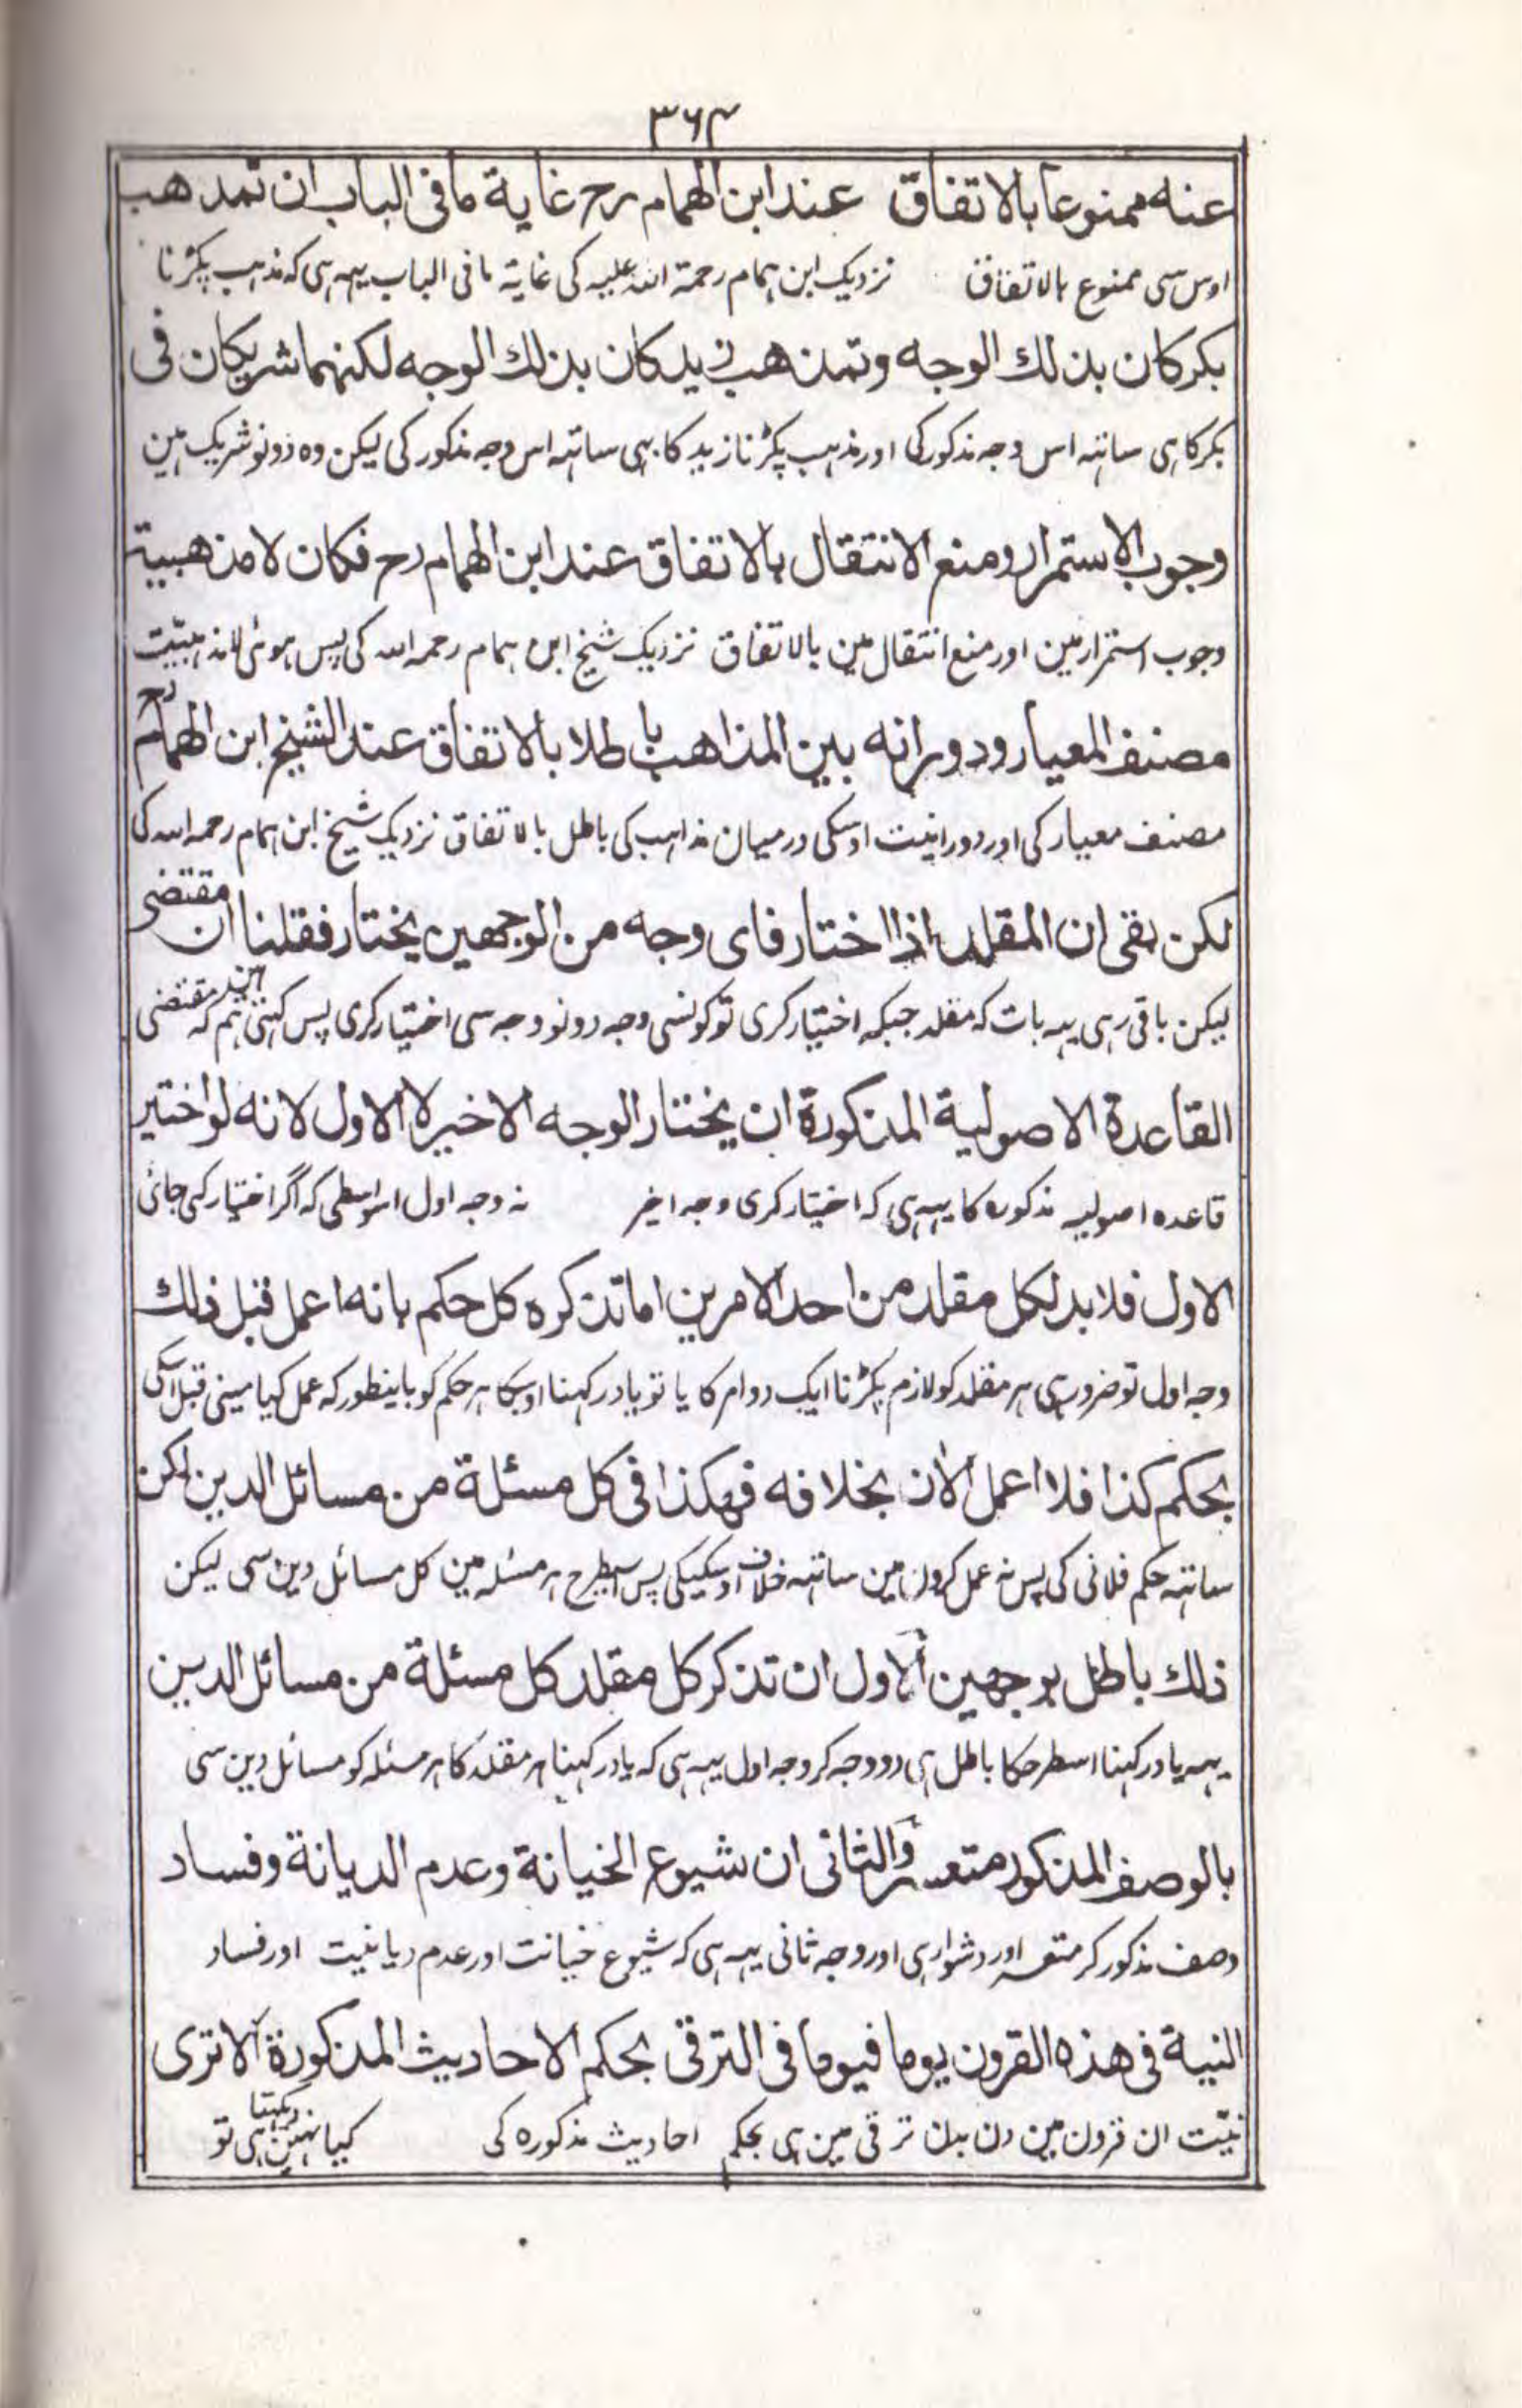 ۳۶۴
عنه ممنوعا بالاتفاق عند ابن الهمام رح غاية ما فى الباب ان تمذهب
اوس سى ممنوع بالاتفاق نزدیک ابن ہمام رحمۃ اللہ علیہ کی غایۃ ما فی الباب یہہ ہی کہ مذہب پکڑنا
بكر كان بذلك الوجه وتمذهب زيد كان بذلك الوجه لكنهما شريكان فى
بکر کا ہی ساتہہ اس وجہ مذکور کی اور مذہب پکڑنا زید کا بہی ساتہہ اس وجہ مذکور کی لیکن وہ دونو شریک ہین
وجوب الاستمرار ومنع الانتقال بالاتفاق عند ابن الهمام رح فكان لامذهبية
وجوب استمرار مین اور منع انتقال مین بالاتفاق نزدیک شیخ ابن ہمام رحمہ اللہ کی پس ہوئی لامذہبیّت
مصنف المعيار ودورانه بين المذاهب باطلا بالاتفاق عند الشيخ ابن الهمام رح
مصنف معیار کی اور دورانیت اوسکی درمیان مذاہب کی باطل بالاتفاق نزدیک شیخ ابن ہمام رحمہ اللہ کی
لكن بقى ان المقلد اذا اختار فاى وجه من الوجهين يختار فقلنا ان مقتضى
لیکن باقی رہی یہہ بات کہ مقلد جبکہ اختیار کری تو کونسی وجہ دونو وجہ سی اختیار کری پس کہتی ہین ہم کہ مقتضی
القاعدة الاصولية المذكورة ان يختار الوجه الاخير لا الاول لانه لو اختير
قاعدہ اصولیہ مذکورہ کا یہہ ہی کہ اختیار کری وجہ اخیر نہ وجہ اول اسواسطی کہ اگر اختیار کی جائی
الاول فلا بد لكل مقلد من احد الامرين اما تذكره كل حكم بانه اعمل قبل ذلك
وجہ اول تو ضرور ہی ہر مقلد کو لازم پکڑنا ایک دو امر کا یا تو یاد رکہنا اوسکا ہر حکم کو باینطور کہ عمل کیا مینی قبل اسکی
بحكم كذا فلا اعمل الان بخلافه فهكذا فى كل مسئلة من مسائل الدين لكن
ساتہہ حکم فلانی کی پس نہ عمل کرون مین ساتہہ خلاف اوسکیکی پس اسیطرح ہر مسئلہ مین کل مسائل دین سی لیکن
ذلك باطل بوجهين الاول ان تذكر كل مقلد كل مسئلة من مسائل الدين
یہہ یاد رکہنا اسطرحکا باطل ہی دو وجہ کر وجہ اول یہہ ہی کہ یاد رکہنا ہر مقلد کا ہر مسئلہ کو مسائل دین سی
بالوصف المذكور متعسر والثانى ان شيوع الخيانة وعدم الديانة وفساد
وصف مذکور کر متعسر اور دشوار ہی اور وجہ ثانی یہہ ہی کہ شیوع خیانت اور عدم دیانیت اور فساد
النية فى هذه القرون يوما فيوما فى الترقى بحكم الاحاديث المذكورة الا ترى
نیّت ان قرون مین دن بدن ترقی مین ہی بحکم احادیث مذکورہ کی کیا نہین دیکہتا ہی تو